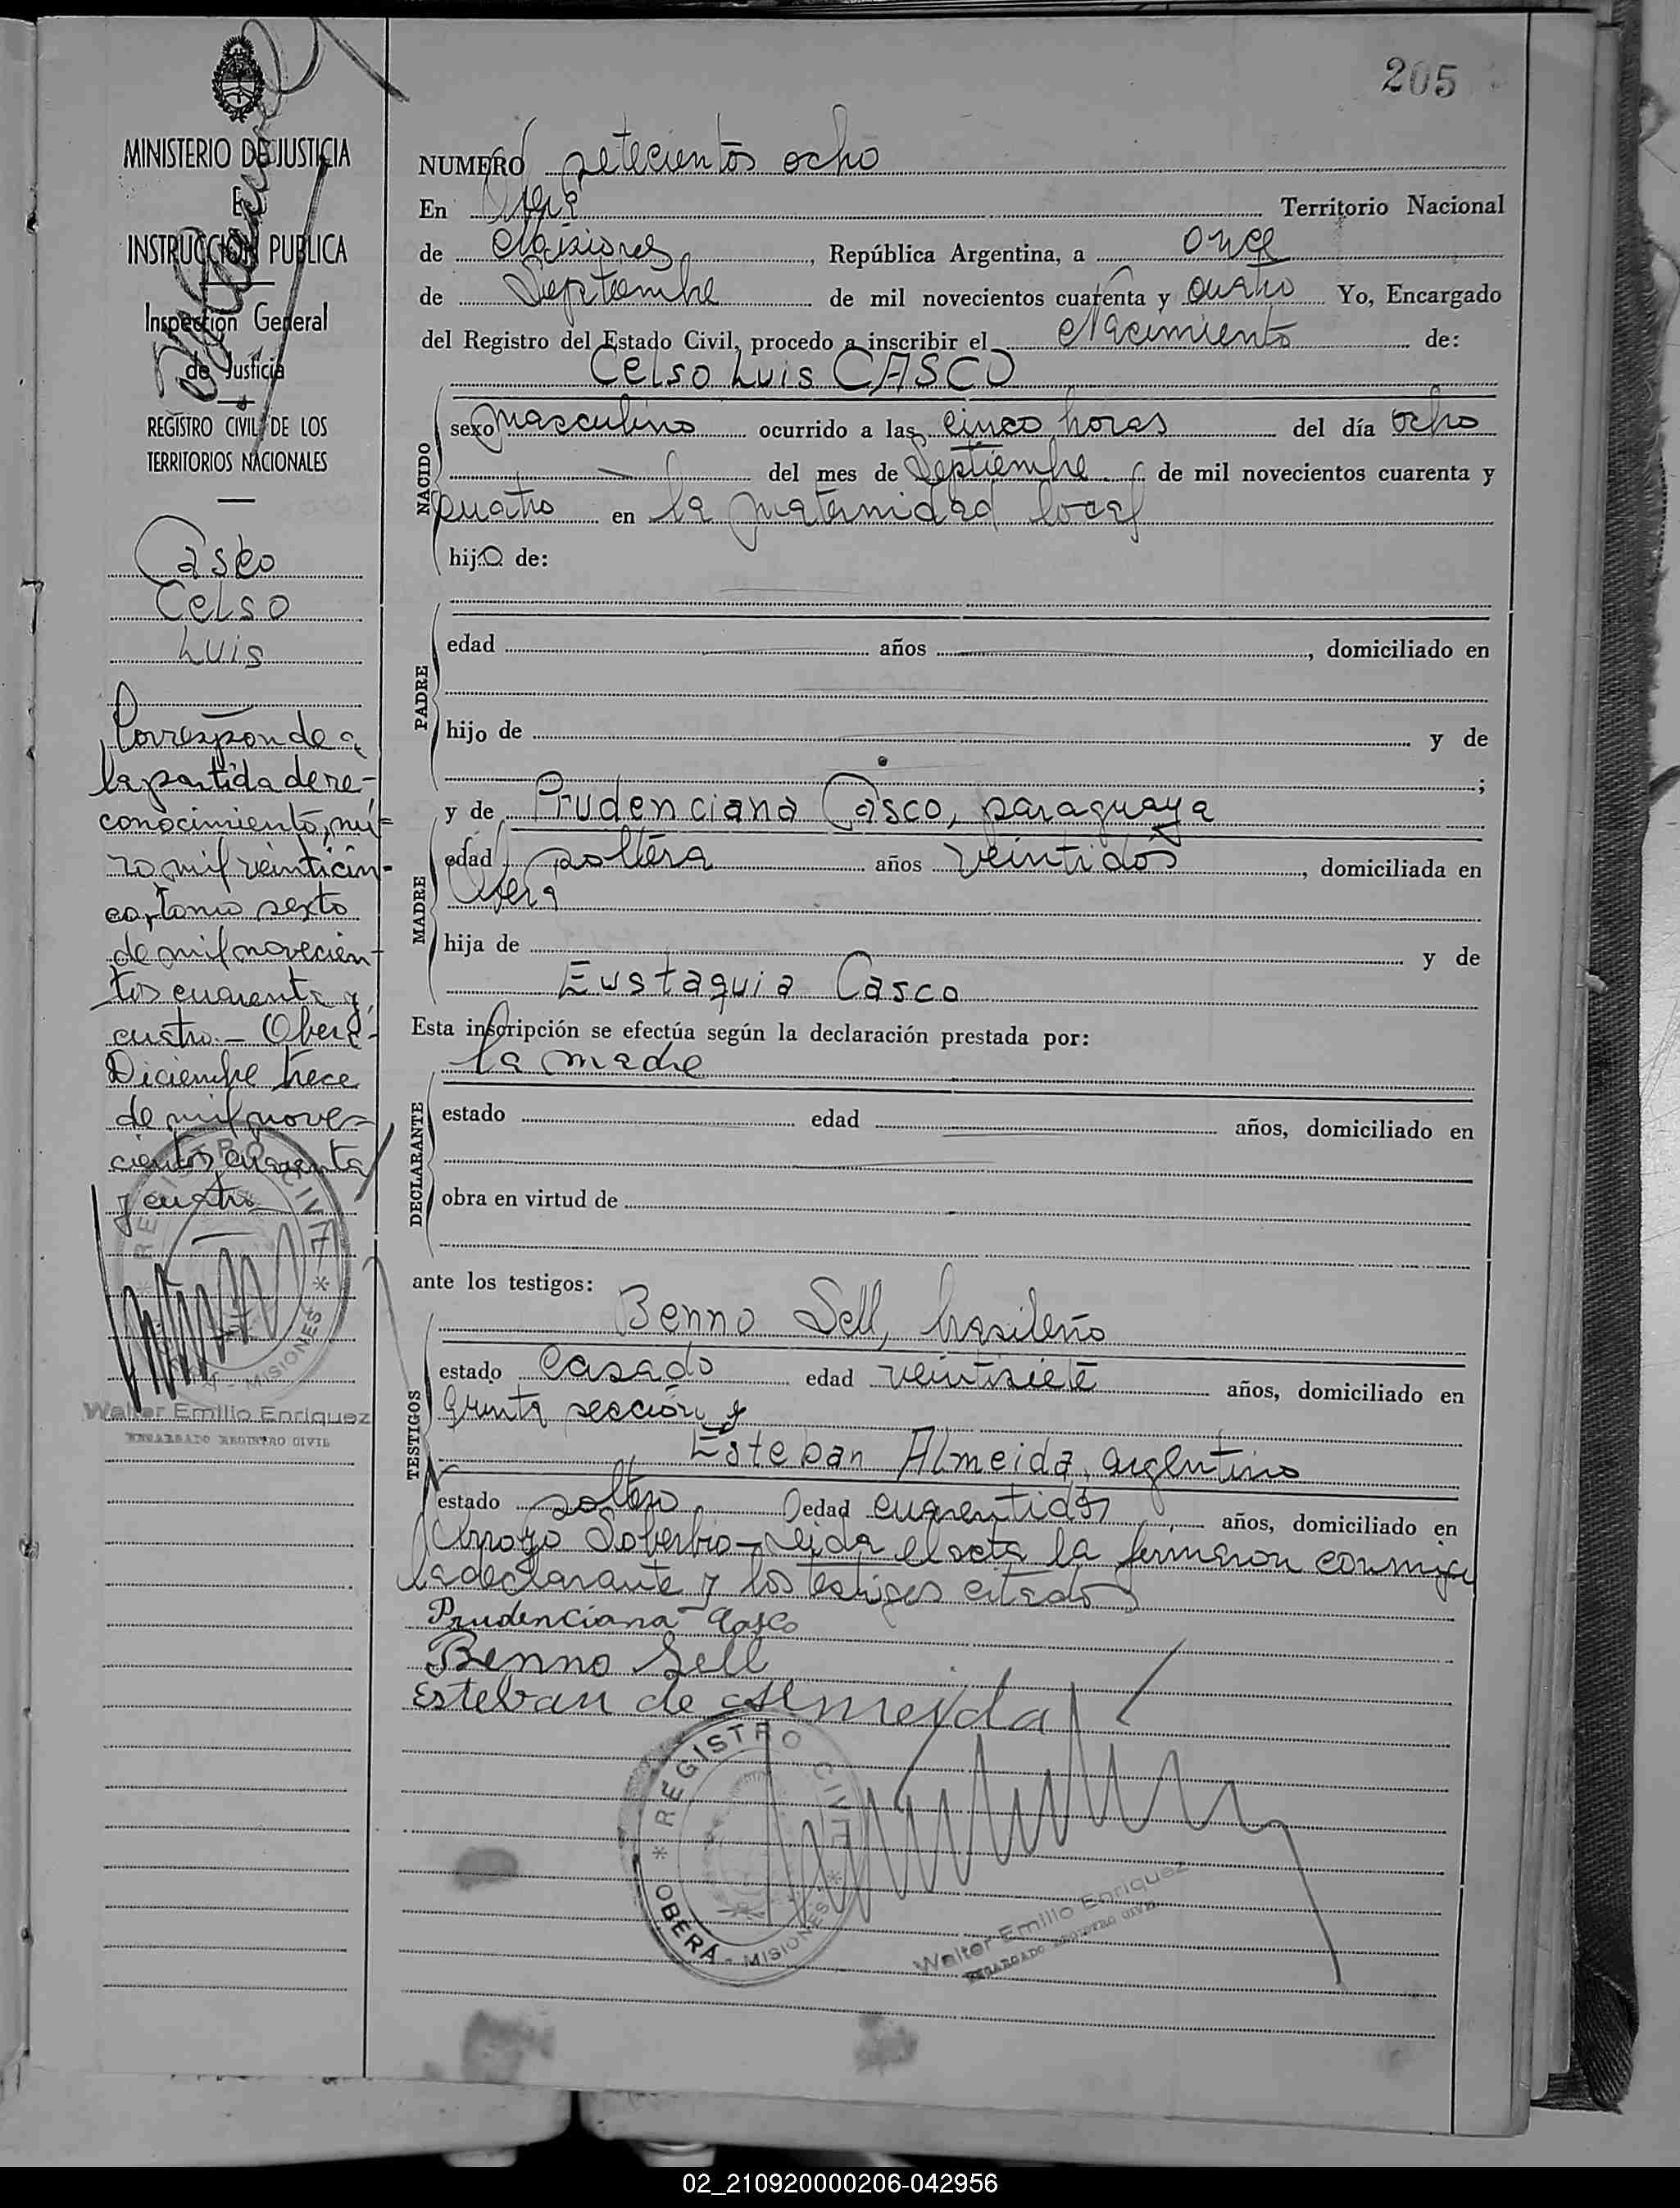 205
MINISTERIO DE JUSTICIA
E
INSTRUCCION PUBLICA
Inspección General
de Justicia
REGISTRO CIVIL DE LOS
TERRITORIOS NACIONALES
Casco
Celso
Luis
Corresponde a
la partida de re-
conocimiento, nú-
ro mil veinticin-
co, tomo sexto
de mil novecien-
tos cuarenta y
cuatro.- Oberá-
Diciembre trece
de mil nove-
cientos cuarenta
y cuatro
REGISTRO CIVIL
MISIONES
Walter Emilio Enriquez
ENCARGADO REGISTRO CIVIL
NUMERO setecientos ocho
En Oberá Territorio Nacional
de Misiones, República Argentina, a once
de Septiembre de mil novecientos cuarenta y cuatro Yo, Encargado
del Registro del Estado Civil, procedo a inscribir el Nacimiento de:
Celso Luis CASCO
NACIDO
sexo masculino ocurrido a las cinco horas del día ocho
del mes de Septiembre de mil novecientos cuarenta y
cuatro en la maternidad local
hijo de:
PADRE
edad años , domiciliado en
hijo de y de
;
MADRE
y de Prudenciana Casco, paraguaya
edad soltera años veintidos , domiciliada en
Oberá
hija de y de
Eustaquia Casco
Esta inscripción se efectúa según la declaración prestada por:
la madre
DECLARANTE
estado edad años, domiciliado en
obra en virtud de
ante los testigos:
TESTIGOS
Benno Sell, brasileño
estado casado edad veintisiete años, domiciliado en
quinta sección y
Esteban Almeida, argentino
estado soltero edad cuarentidós años, domiciliado en
Arroyo Soberbio - Leida el acta la firmaron conmigo
la declarante y los testigos citados
Prudenciana Casco
Benno Sell
Esteban de Almeida
REGISTRO CIVIL
OBERÁ - MISIONES
Walter Emilio Enriquez
ENCARGADO REGISTRO CIVIL
02_210920000206-042956